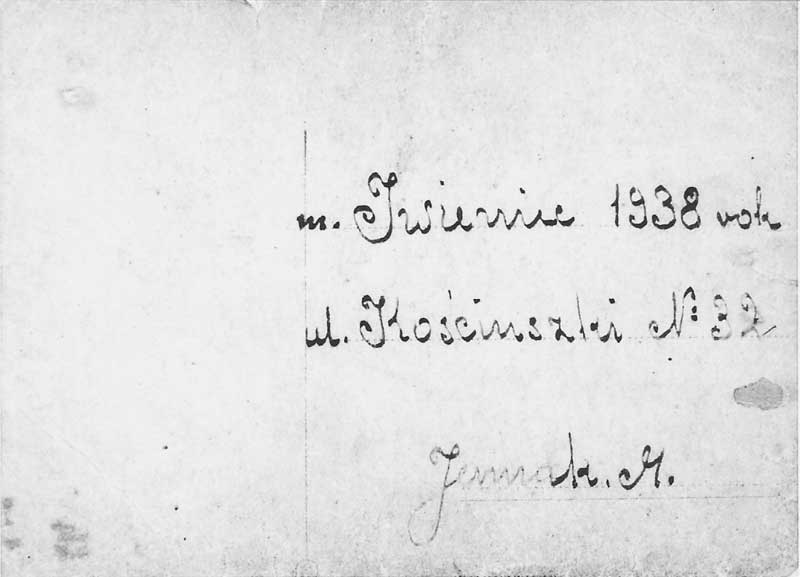 m. Iwieniec 1938 rok
ul. Kościuszki № 32
Jumak. M.